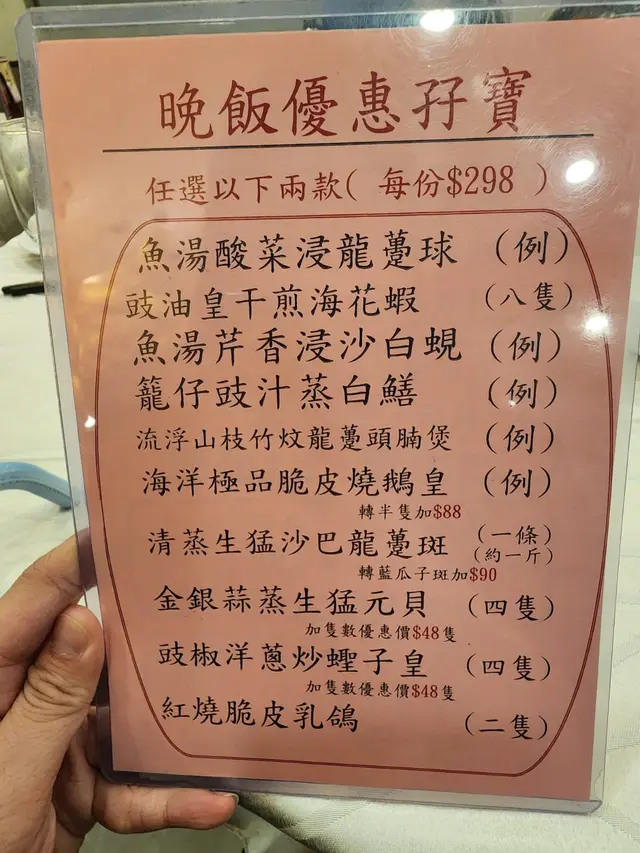 晚飯優惠孖寶
任選以下兩款( 每份$298 )
魚湯酸菜浸龍躉球 (例)
豉油皇干煎海花蝦 (八隻)
魚湯芹香浸沙白蜆 (例)
籠仔豉汁蒸白鱔 (例)
流浮山枝竹炆龍躉頭腩煲 (例)
海洋極品脆皮燒鵝皇 (例)
轉半隻加$88
清蒸生猛沙巴龍躉斑 (一條)
(約一斤)
轉藍瓜子斑加$90
金銀蒜蒸生猛元貝 (四隻)
加隻數優惠價$48隻
豉椒洋蔥炒蟶子皇 (四隻)
加隻數優惠價$48隻
紅燒脆皮乳鴿 (二隻)